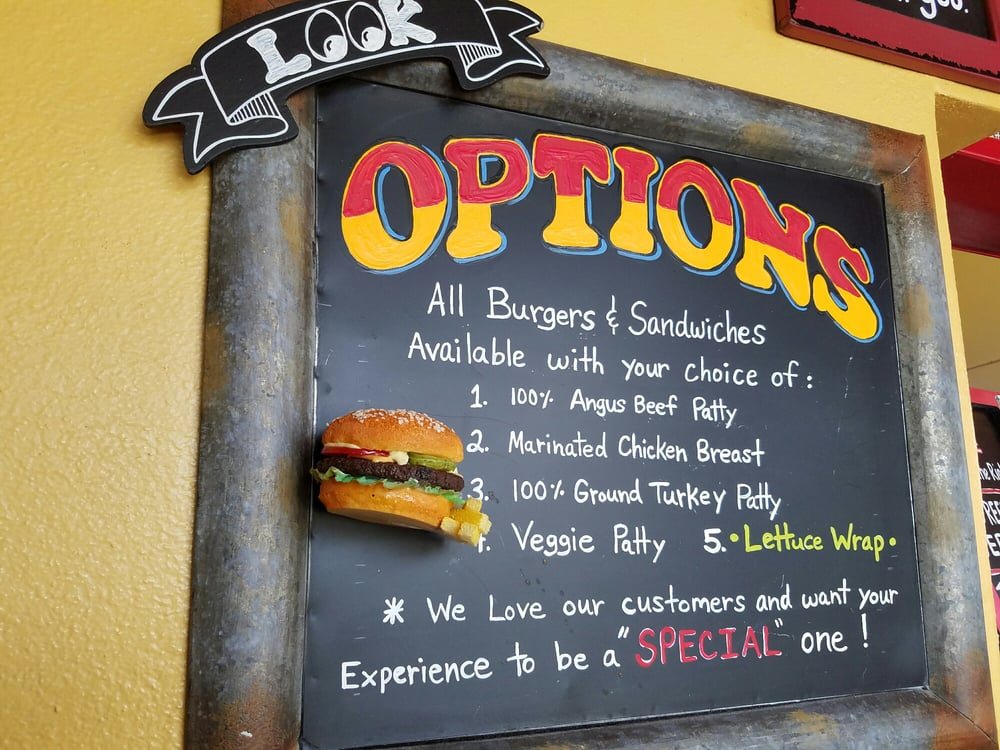 LOOK
OPTIONS
All Burgers & Sandwiches
Available with your choice of:
1. 100% Angus Beef Patty
2. Marinated Chicken Breast
3. 100% Ground Turkey Patty
4. Veggie Patty 5. •Lettuce Wrap•
* We Love our customers and want your
Experience to be a "SPECIAL" one!
you.